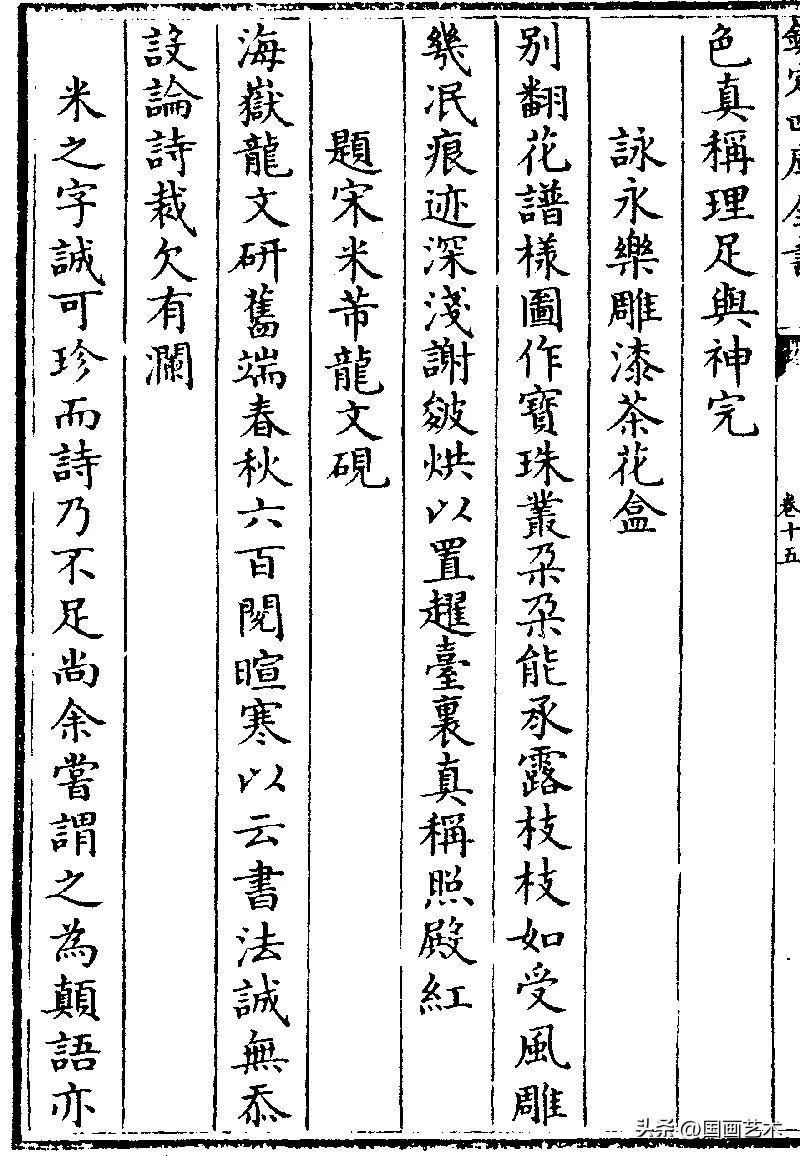 欽定四庫全書
卷十五
色真稱理足與神完
詠永樂雕漆茶花盒
别翻花譜様圖作寶珠叢朶朶能承露枝枝如受風雕
幾泯痕迹深淺謝皴烘以置趯臺裏真稱照殿紅
題宋米芾龍文硯
海嶽龍文研舊端春秋六百閱暄寒以云書法誠無忝
設論詩裁欠有瀾
米之字誠可珍而詩乃不足尚余嘗謂之為顛語亦
头条@国画艺术